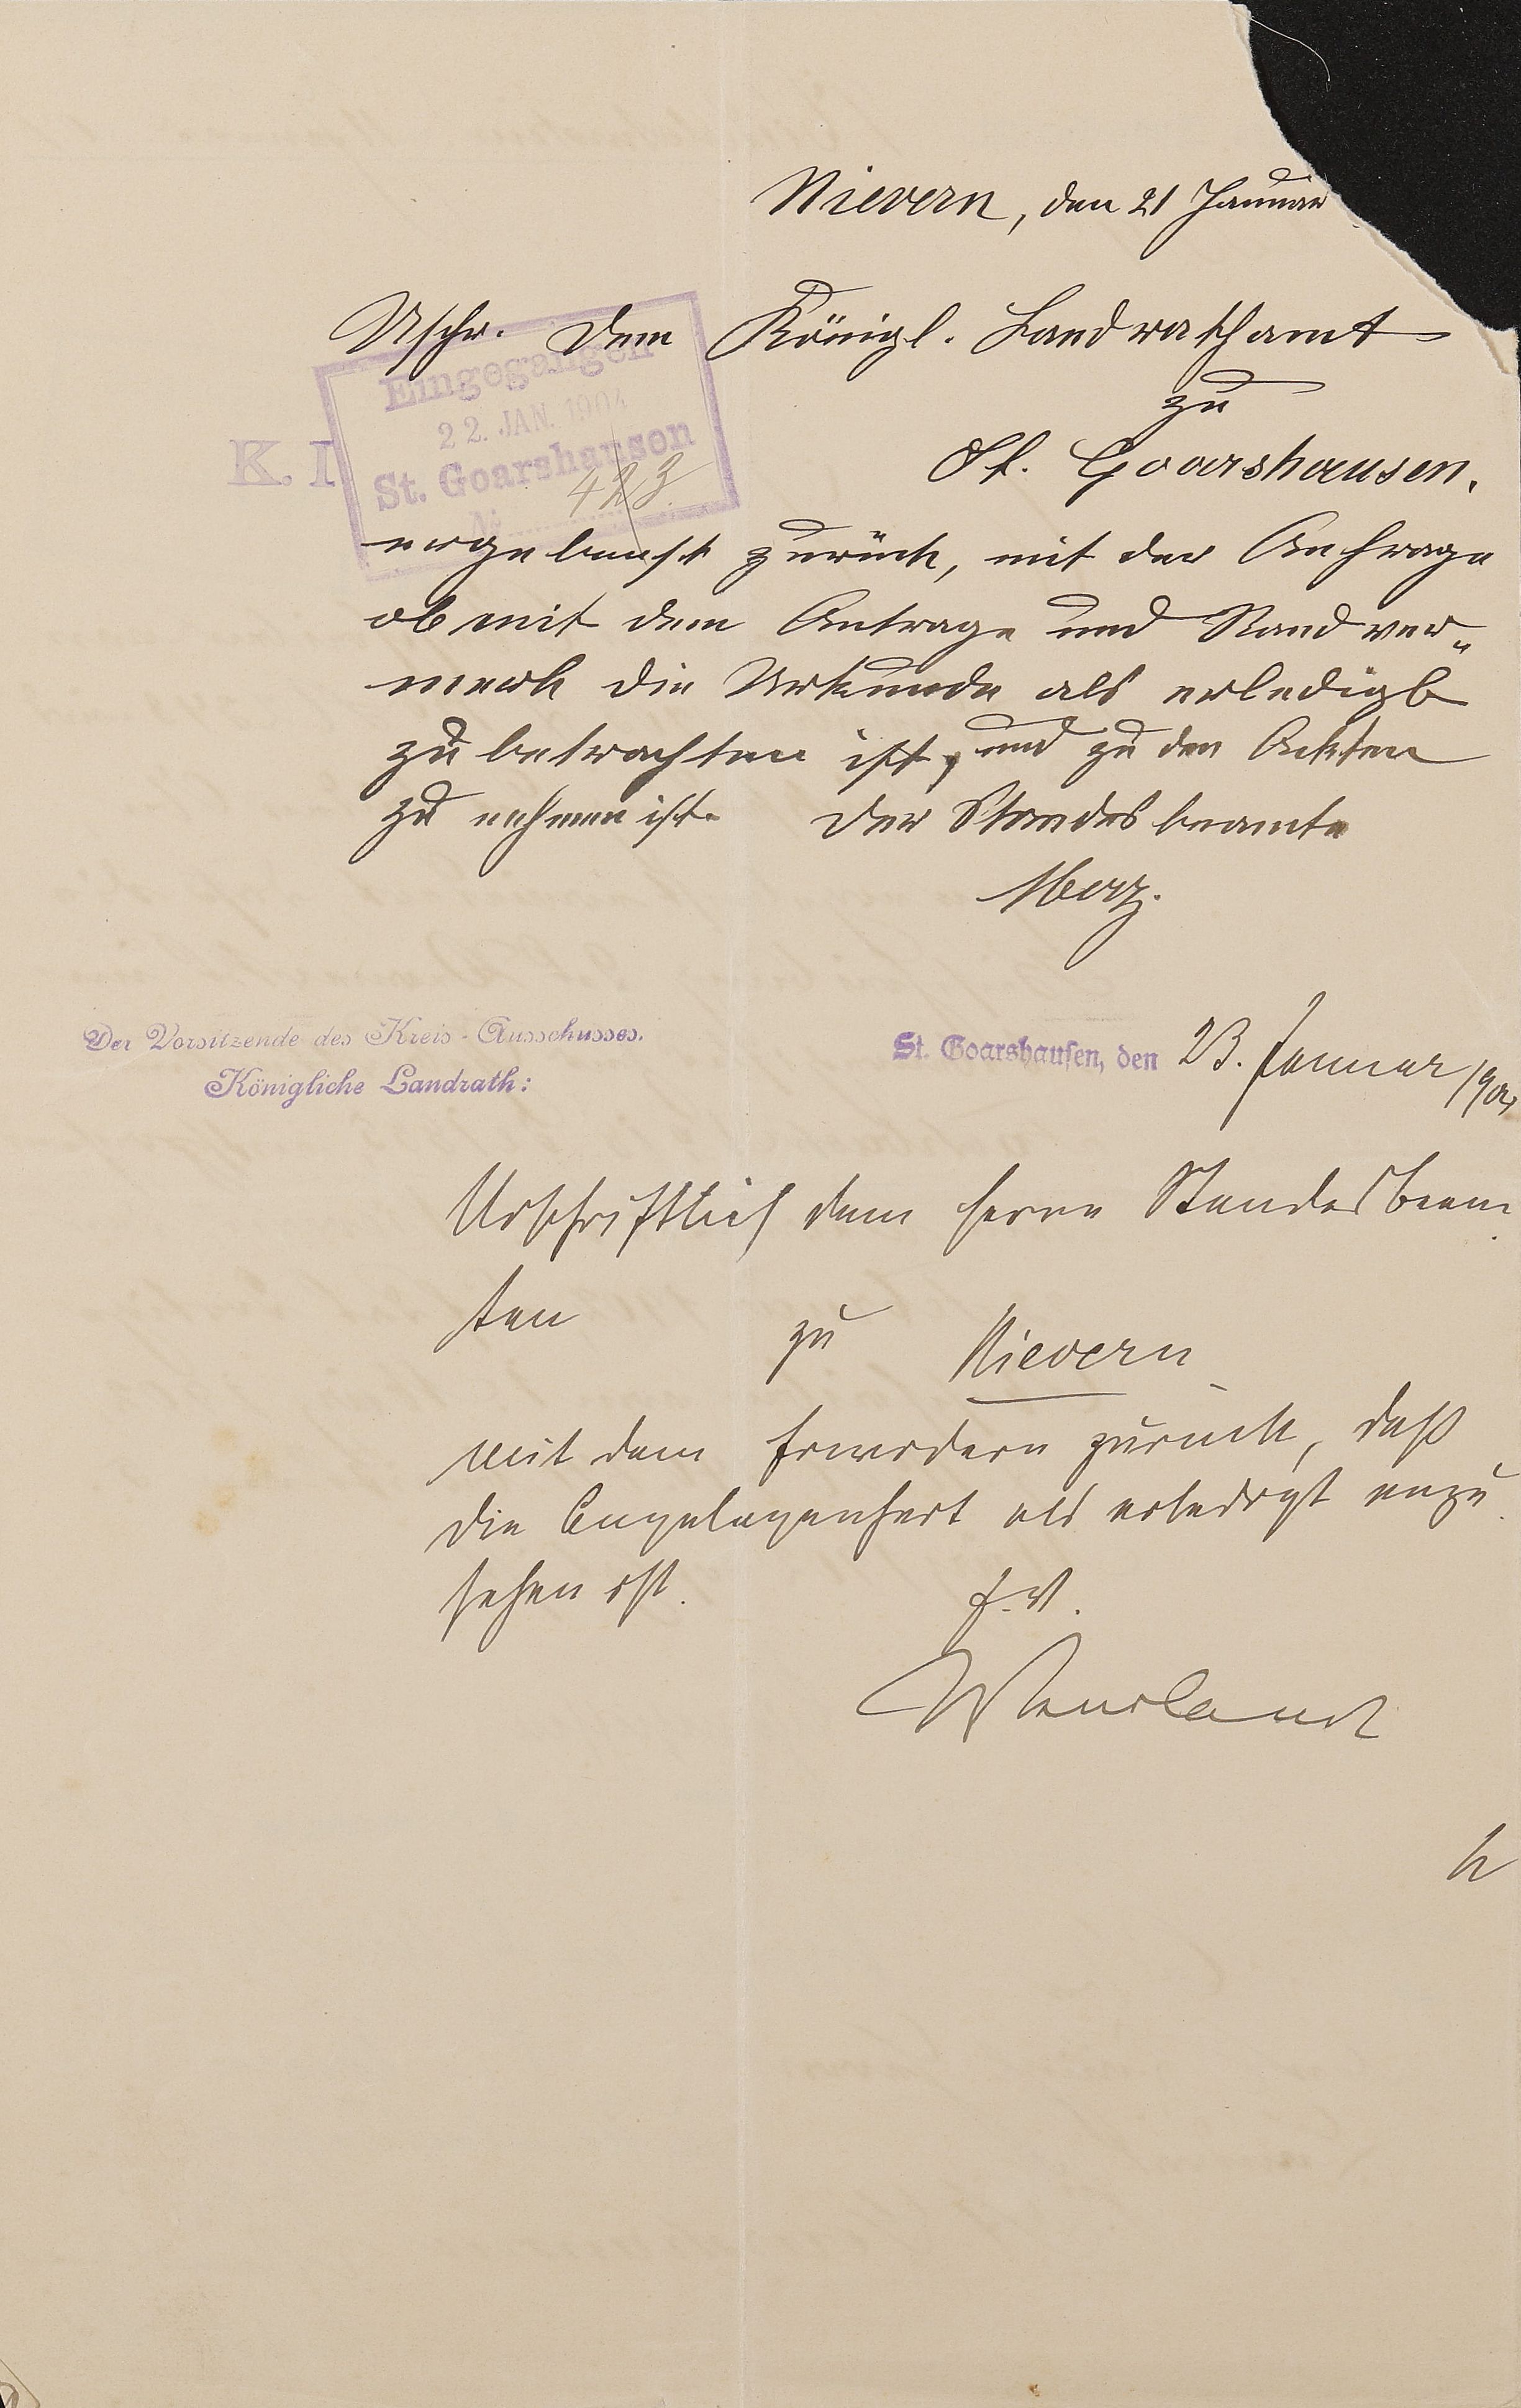 Nievern, den 21 Januar
Uschr. dem Königl. Landrathamt
zu
St. Goarshausen.
Eingegangen
22. JAN. 1904
St. Goarshausen
No 423
K. I
ergebenst zurück, mit der Anfrage
ob mit dem Antrage und Randver„
merk die Urkunde als erledigt
zu betrachten ist, und zu den Ackten
zu nehmen ist. Der Standesbeamte
Der Vorsitzende des Kreis-Ausschusses.
Königliche Landrath:
St. Goarshausen, den 23. Januar 190
Urschriftlich dem Herrn Standesbeam
ten zu Nievern
mit dem Erwidern zurück, daß
die Angelegenheit als erledigt anzu
sehen ist. J. V.